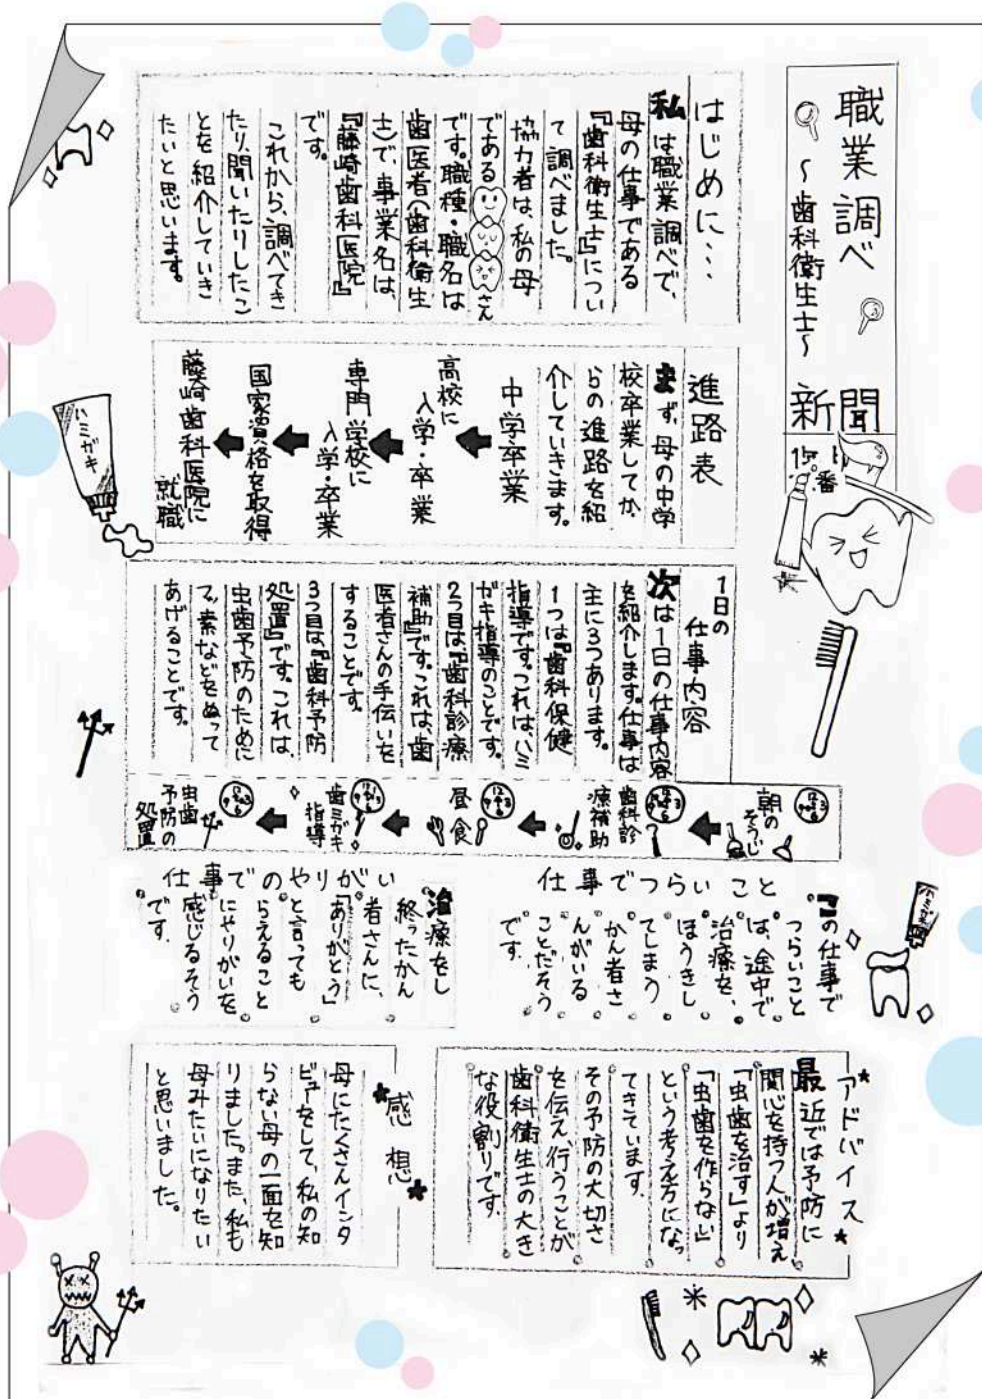 職業調べ
～歯科衛生士～
新聞
番
はじめに・・・
私は職業調べで、
母の仕事である
『歯科衛生士』につい
て調べました。
協力者は、私の母
である
さん
です。職種・職名は
歯医者(歯科衛生
士)で、事業名は、
『藤崎歯科医院』
です。
これから、調べてき
たり、聞いたりしたこ
とを紹介していき
たいと思います。
進路表
まず、母の中学
校卒業してか
らの進路を紹
介していきます。
中学卒業
高校に
入学・卒業
専門学校に
入学・卒業
国家資格を取得
藤崎歯科医院に
就職
ハミガキ
1日の
仕事内容
次は1日の仕事内容
を紹介します。仕事は
主に3つあります。
1つは『歯科保健
指導です。これは、ハミ
ガキ指導のことです。
2つ目は、『歯科診療
補助』です。これは、歯
医者さんの手伝いを
することです。
3つ目は、『歯科予防
処置』です。これは、
虫歯予防のために
フッ素などをぬって
あげることです。
朝の
そうじ
歯科診
療補助
昼食
歯ミガキ
指導
虫歯
予防の
処置
仕事でつらいこと
この仕事で
つらいこと
は、途中で
治療を、
ほうきし
てしまう
かん者さ
んがいる
ことだそう
です。
仕事でのやりがい
治療をし
終ったかん
者さんに、
「ありがとう」
と言っても
らえること
にやりがいを
感じるそう
です。
ハミガキ
アドバイス
最近では予防に
関心を持つ人が増え
「虫歯を治す」より
「虫歯を作らない」
という考え方になっ
てきています。
その予防の大切さ
を伝え、行うことが
歯科衛生士の大き
な役割りです。
感想
母にたくさんインタ
ビューをして、私の知
らない母の一面を知
りました。また、私も
母みたいになりたい
と思いました。